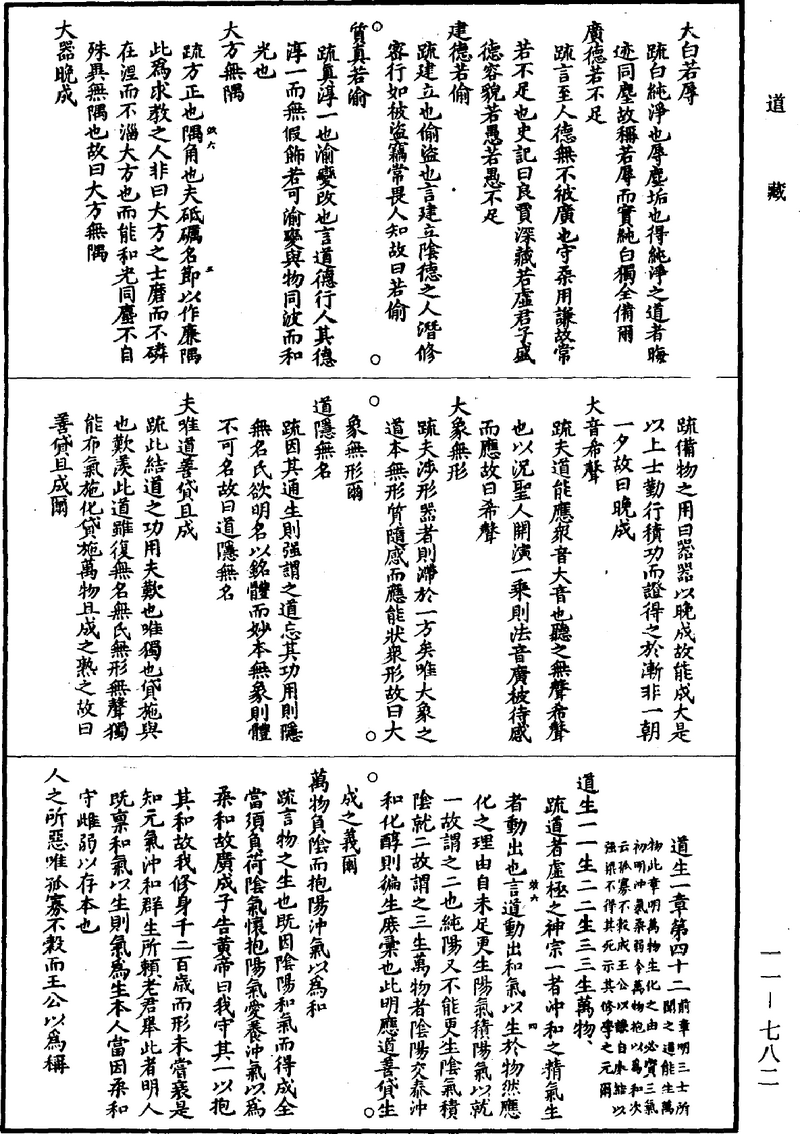 道藏
大白若辱
疏白純淨也辱塵垢也得純淨之道者晦
迹同塵故稱若辱而實純白獨全備爾
廣德若不足
疏言至人德無不被廣也守柔用謙故常
若不足也史記曰良賈深藏若虛君子盛
德容貌若愚若愚不足
建德若偷
疏建立也偷盜也言建立陰德之人潛修
密行如被盜竊常畏人知故曰若偷
質真若渝
疏真淳一也渝變改也言道德行人其德
淳一而無假飾若可渝變與物同波而和
光也
大方無隅
疏方正也隅角也夫砥礪名節以作廉隅
此為求教之人非曰大方之士磨而不磷
在涅而不淄大方也而能和光同塵不自
殊異無隅也故曰大方無隅
大器晚成
疏備物之用曰器器以晚成故能成大是
以上士勤行積功而證得之於漸非一朝
一夕故曰晚成
大音希聲
疏夫道能應眾音大音也聽之無聲希聲
也以況聖人開演一乘則法音廣被待感
而應故曰希聲
大象無形
疏夫涉形器者則滯於一方矣唯大象之
道本無形質隨感而應能狀眾形故曰大
象無形爾
道隱無名
疏因其通生則強謂之道忘其功用則隱
無名氏欲明名以銘體而妙本無象則體
不可名故曰道隱無名
夫唯道善貸且成
疏此結道之功用夫歎也唯獨也貸施與
也歎美此道雖復無名無氏無形無聲獨
能布氣施化貸施萬物且成之熟之故曰
善貸且成爾
道生一章第四十二
前章明三士所
聞之道能生萬
物此章明萬物生化之由必資三氣
初明沖氣柔弱令萬物抱以為和次
云孤寡不穀戒王公以謙自牧結以
強梁不得其死示其修學之元爾
道生一一生二二生三三生萬物
疏道者虛極之神宗一者沖和之精氣生
者動出也言道動出和氣以生於物然應
化之理由自未足更生陽氣積陽氣以就
一故謂之二也純陽又不能更生陰氣積
陰就二故謂之三生萬物者陰陽交泰沖
和化醇則徧生庶彙也此明應道善貸生
成之義爾
萬物負陰而抱陽沖氣以為和
疏言物之生也既因陰陽和氣而得成全
當須負荷陰氣懷抱陽氣愛養沖氣以為
柔和故廣成子告黃帝曰我守其一以抱
其和故我修身千二百歲而形未嘗衰是
知元氣沖和群生所賴老君舉此者明人
既稟和氣以生則氣為生本人當因柔和
守雌弱以存本也
人之所惡唯孤寡不穀而王公以為稱
一一—七八二